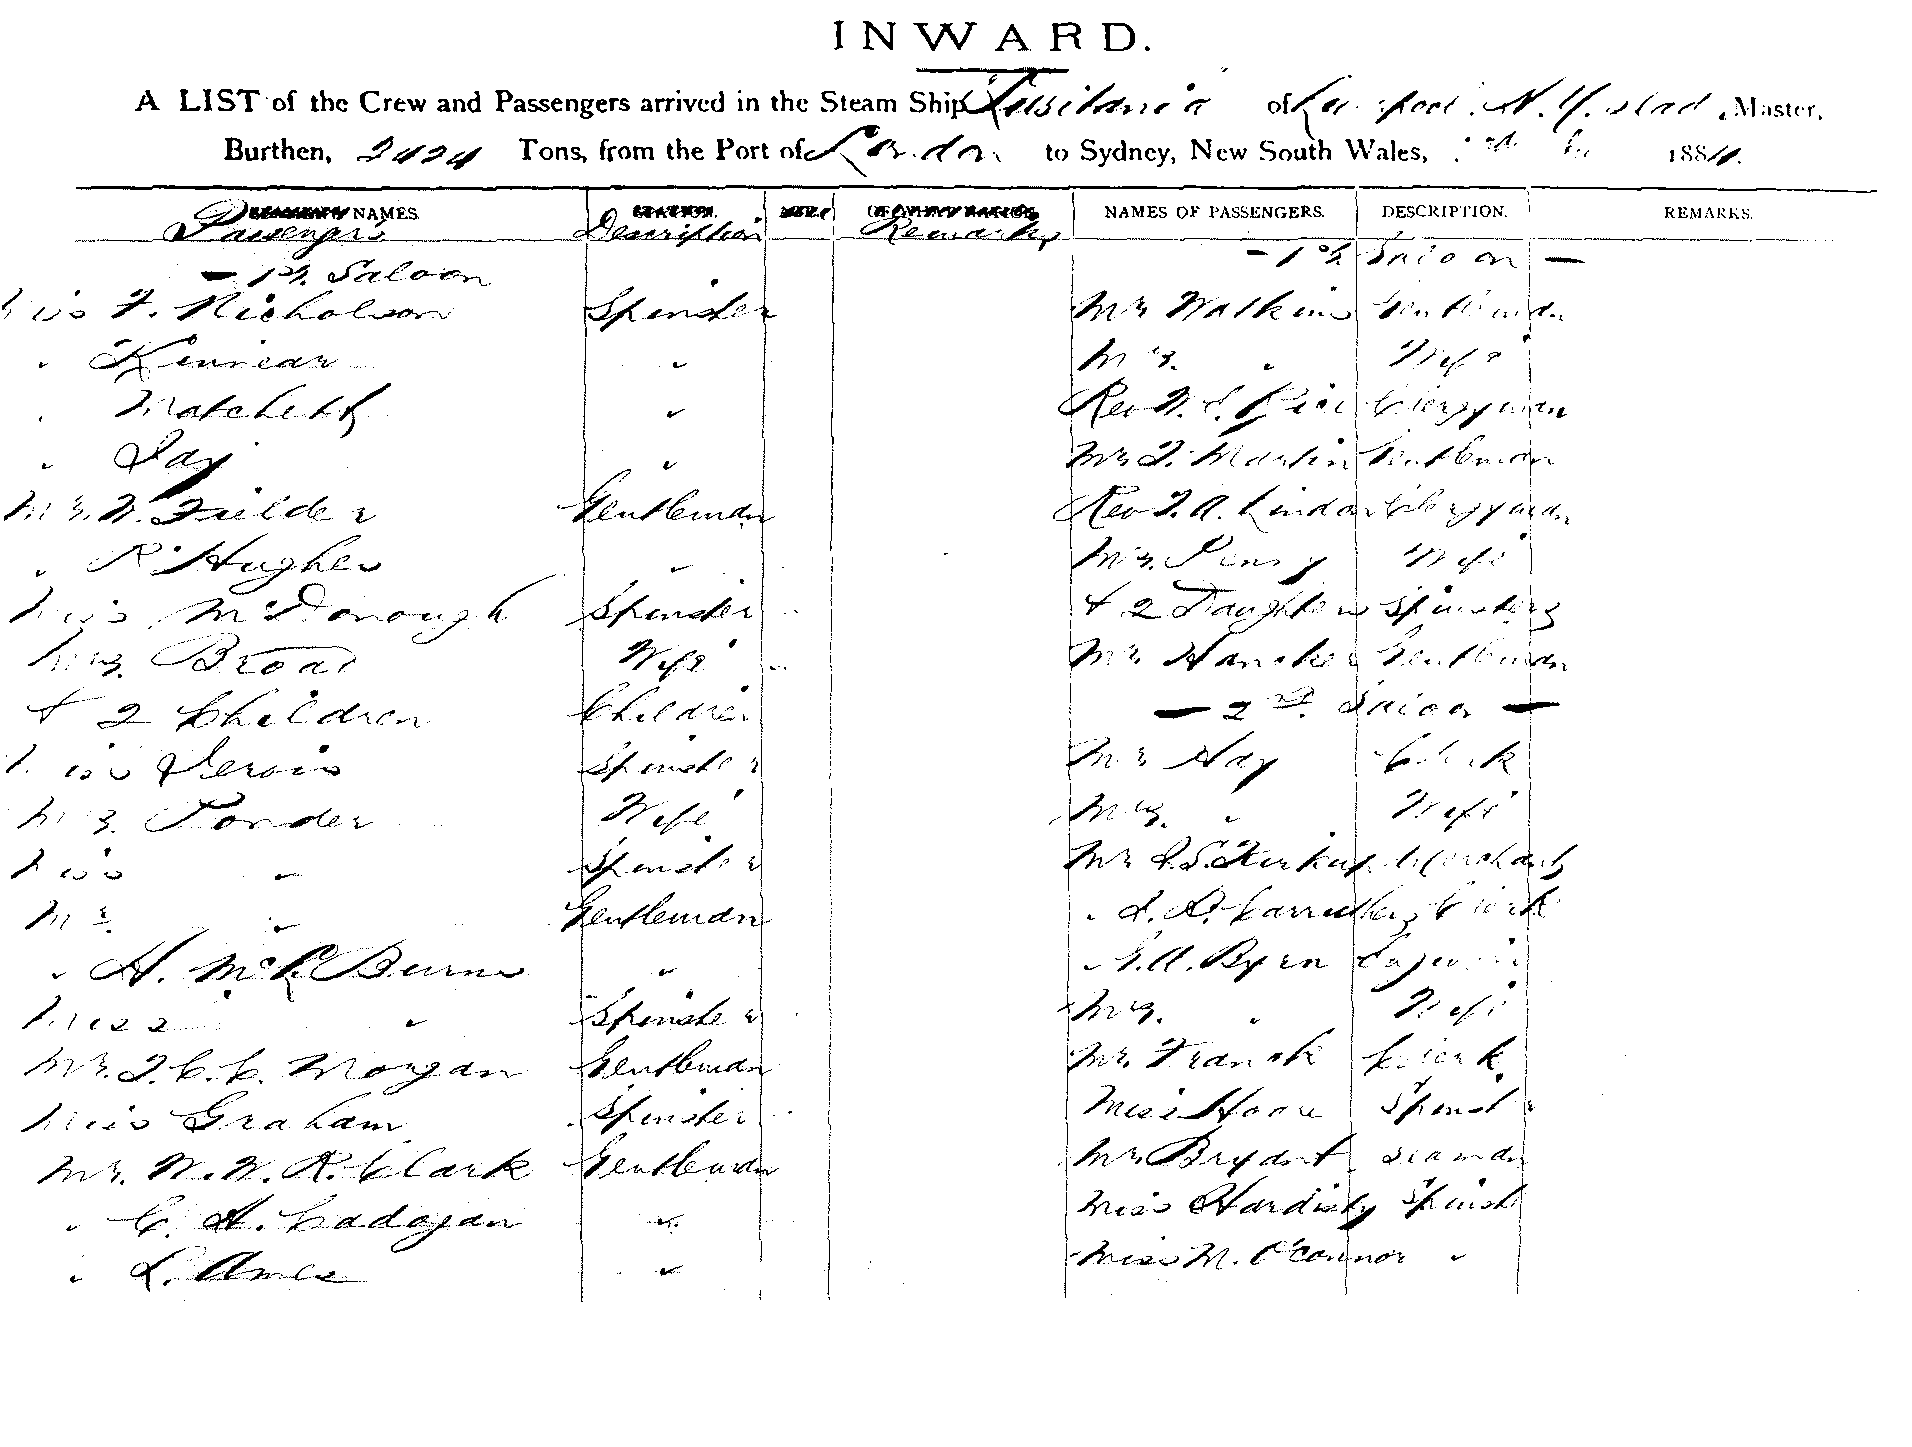 INWARD.
A LIST of the Crew and Passengers arrived in the Steam Ship Lusitania of Master,
Burthen, 2424 Tons, from the Port of London to Sydney, New South Wales, 188
NAMES. NAMES OF PASSENGERS. DESCRIPTION. REMARKS.
Passengers Description Remarks
- 1st Saloon
Miss F. Nicholson Spinster
" Kinnear "
" "
" Jay "
Mr. W. Fielder Gentleman
" R. Hughes "
Miss McDonough Spinster
Mrs. Broad Wife
+ 2 Children Children
Miss Spinster
Mrs. Ponder Wife
Miss " Spinster
Mr. " Gentleman
" H. McK Burns "
Miss " Spinster
Mr. C. C. Morgan Gentleman
Miss Graham Spinster
Mr. W. W. R. Clark Gentleman
" C. A. Cadogan "
" L. Ames "
- 1st Saloon -
Mr Watkins Gentleman
Mrs. " Wife
Rev Clergyman
Mr Martin Gentleman
Rev Clergyman
Mrs. Wife
+ 2 Daughters Spinsters
Mr. Gentleman
- 2nd. Saloon -
Mr Hay Clerk
Mrs. " Wife
Mr Kirkup Merchant
" Carruthers Clerk
" G. A. Byrn
Mrs. " Wife
Mr. Frank Clerk
Miss Hoare Spinster
Mr Bryant Seaman
Miss Hardisty Spinst
Miss M. O'Connor "